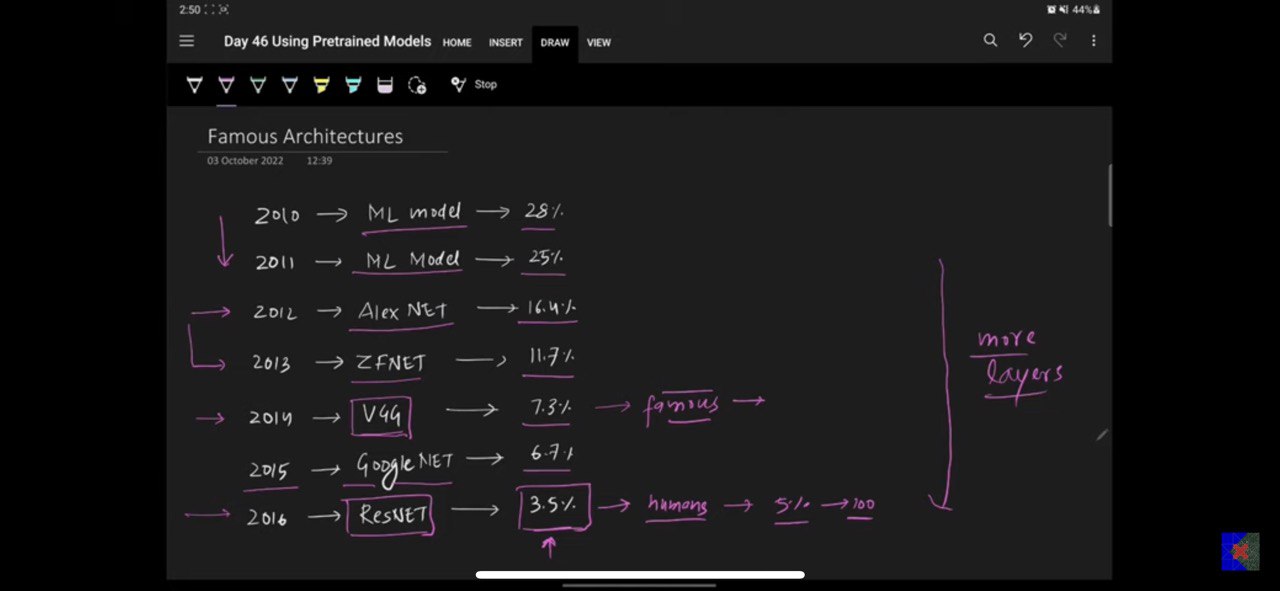 2:50 44%
Day 46 Using Pretrained Models HOME INSERT DRAW VIEW
Stop
Famous Architectures
03 October 2022 12:39
2010 → ML model → 28%
2011 → ML Model → 25%
2012 → Alex NET → 16.4%
2013 → ZFNET → 11.7%
more
layers
2014 → VGG → 7.3% → famous →
2015 → Google NET → 6.7%
2016 → ResNET → 3.5% → humans → 5% → 100